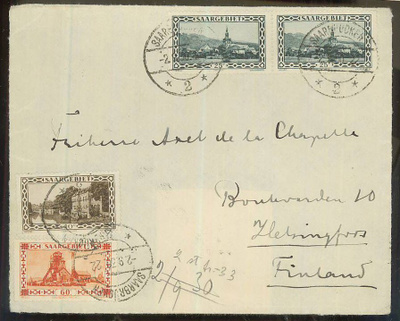 SAARGEBIET SAARGEBIET
SAARBRÜCKEN
2
2
Friherre Axel de la Chapelle
SAARGEBIET
40
Boulevarden 10
Helsingfors
Finland
SAARGEBIET
60
SAARBR
2/9 30